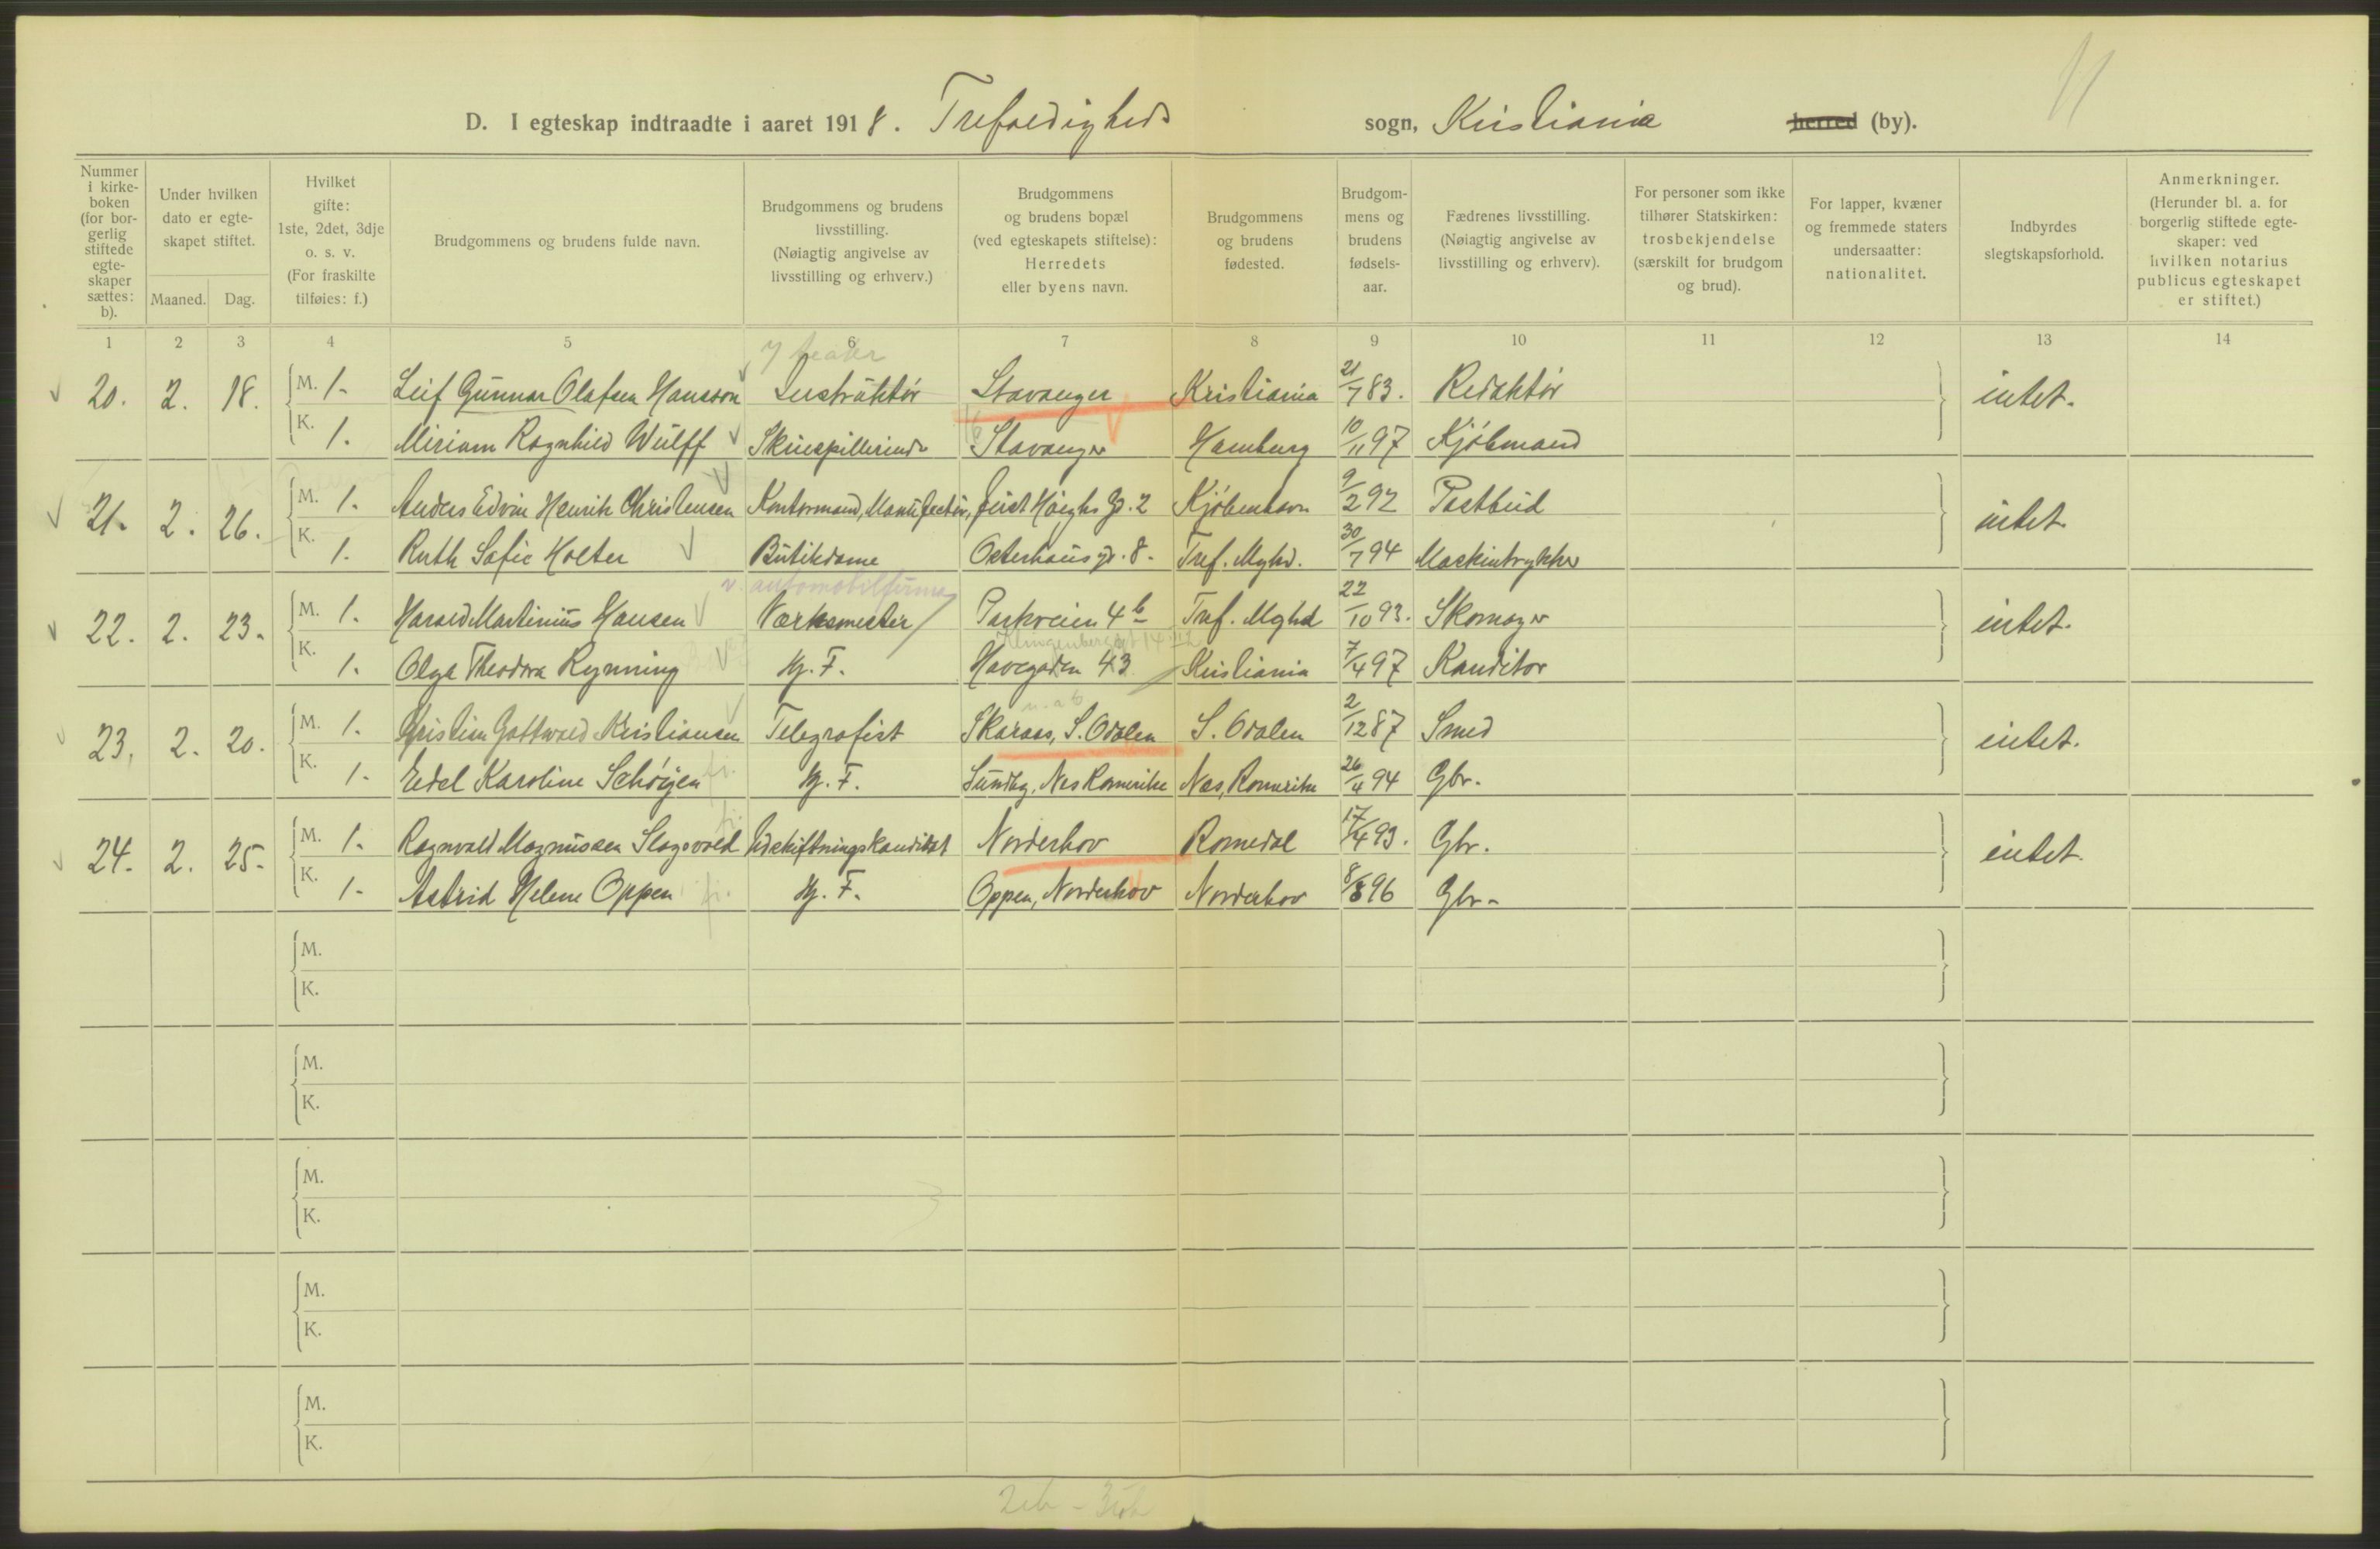 11
D. I egteskap indtraadte i aaret 1918. Trefoldigheds sogn, Kristiania herred (by).
Nummer i kirke-boken (for bor-gerlig stiftede egte-skaper sættes: b).
Under hvilken dato er egte-skapet stiftet.
Maaned. Dag.
Hvilket gifte: 1ste, 2det, 3dje o. s. v. (For fraskilte tilføies: f.)
Brudgommens og brudens fulde navn.
Brudgommens og brudens livsstilling. (Nøiagtig angivelse av livsstilling og erhverv.)
Brudgommens og brudens bopæl (ved egteskapets stiftelse): Herredets eller byens navn.
Brudgommens og brudens fødested.
Brudgom-mens og brudens fødsels-aar.
Fædrenes livsstilling. (Nøiagtig angivelse av livsstilling og erhverv).
For personer som ikke tilhører Statskirken: trosbekjendelse (særskilt for brudgom og brud).
For lapper, kvæner og fremmede staters undersaatter: nationalitet.
Indbyrdes slegtskapsforhold.
Anmerkninger. (Herunder bl. a. for borgerlig stiftede egte-skaper: ved hvilken notarius publicus egteskapet er stiftet.)
1 2 3 4 5 6 7 8 9 10 11 12 13 14
teater
20. 2. 18. M. 1. Leif Gunnar Olafsen Hansson Instruktør Stavanger Kristiania 21/7 83. Redaktør intet.
K. 1. Miriam Ragnhild Wulff Skuespillerinde Stavanger Hamburg 10/11 97 Kjøbmand
21. 2. 26. M. 1. Anders Edvin Henrik Christensen Kontormand, Just Høeghs G. 2 Kjøbenhavn 9/2 92 Postbud intet.
K. 1. Ruth Sofie Holter Butikdame Osterhausg. 8. Tref. Mghd. 30/7 94 Maskintrykker
v. automobilfirma
22. 2. 23. M. 1. Harald Martinius Hansen Værksmester Parkveien 4b Tref. Mghd 22/10 93. Skomager intet.
Klingenberggt 14 III
K. 1. Olga Theodora Rynning Hj. F. Havegaden 43 Kristiania 7/4 97 Konditor
23. 2. 20. M. 1. Kristian Gottwald Kristiansen Telegrafist Skaraas, S. Odalen S. Odalen 2/12 87 Smed intet.
K. 1. Edel Karoline Schøyen Hj. F. Sundby, Nes Romerike Nes, Romerike 26/4 94 Gbr.
24. 2. 25. M. 1. Ragnvald Magnussen Slagsvold Udskiftningskandidat Norderhov Romedal 17/4 93. Gbr. intet.
K. 1. Astrid Helene Oppen Hj. F. Oppen, Norderhov Norderhov 8/8 96 Gbr.
M.
K.
M.
K.
M.
K.
M.
K.
M.
K.